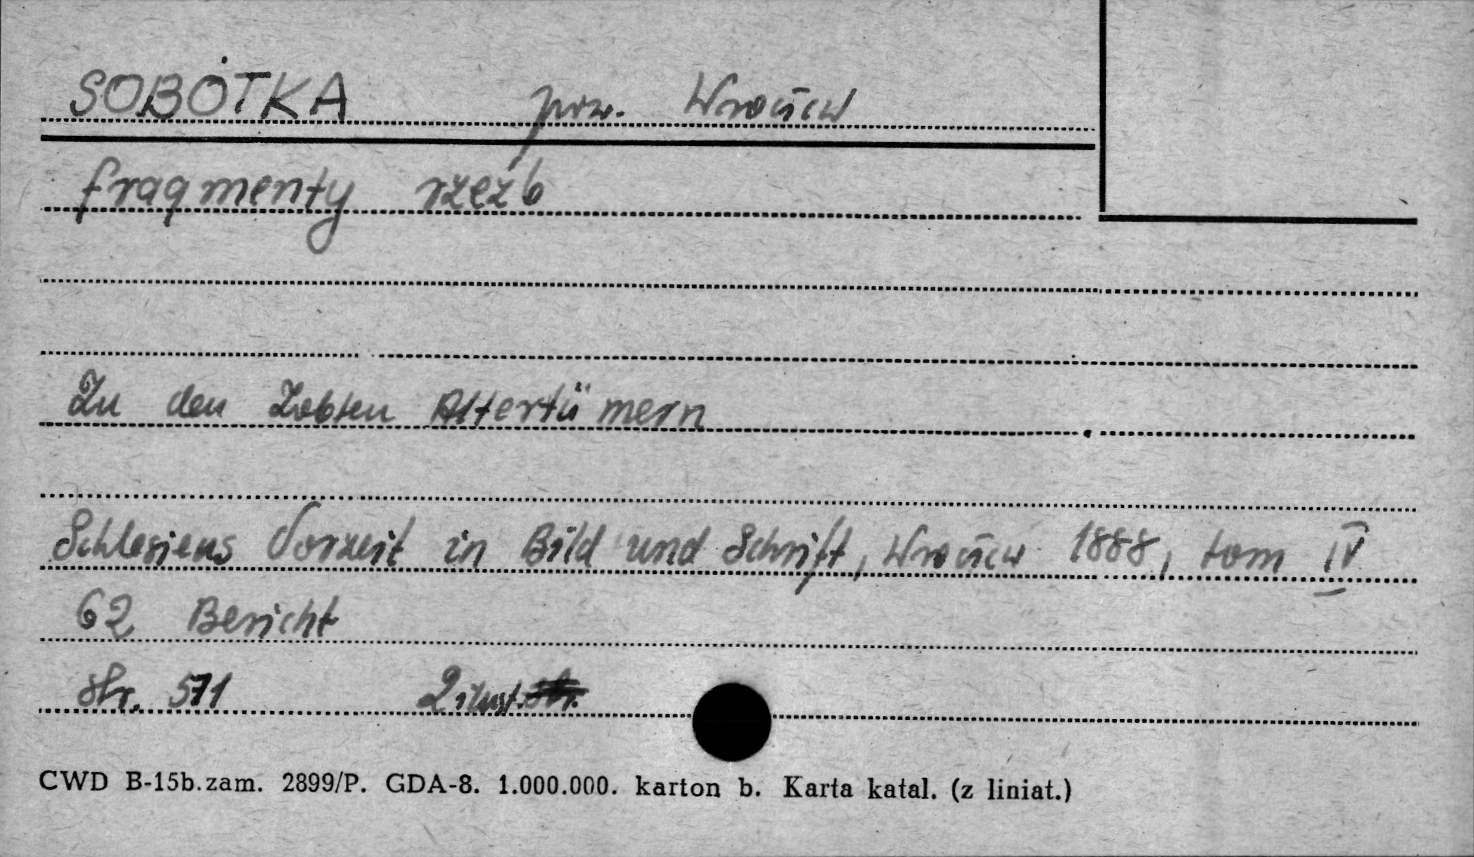 SOBÓTKA pow. Wrocław
fragmenty rzeźb
Zu den Zobten Altertümern
Schlesiens Vorzeit in Bild und Schrift, Wrocław 1888, tom IV
62 Bericht
str. 571 2 ilust.
CWD B-15b.zam. 2899/P. GDA-8. 1.000.000. karton b. Karta katal. (z liniat.)